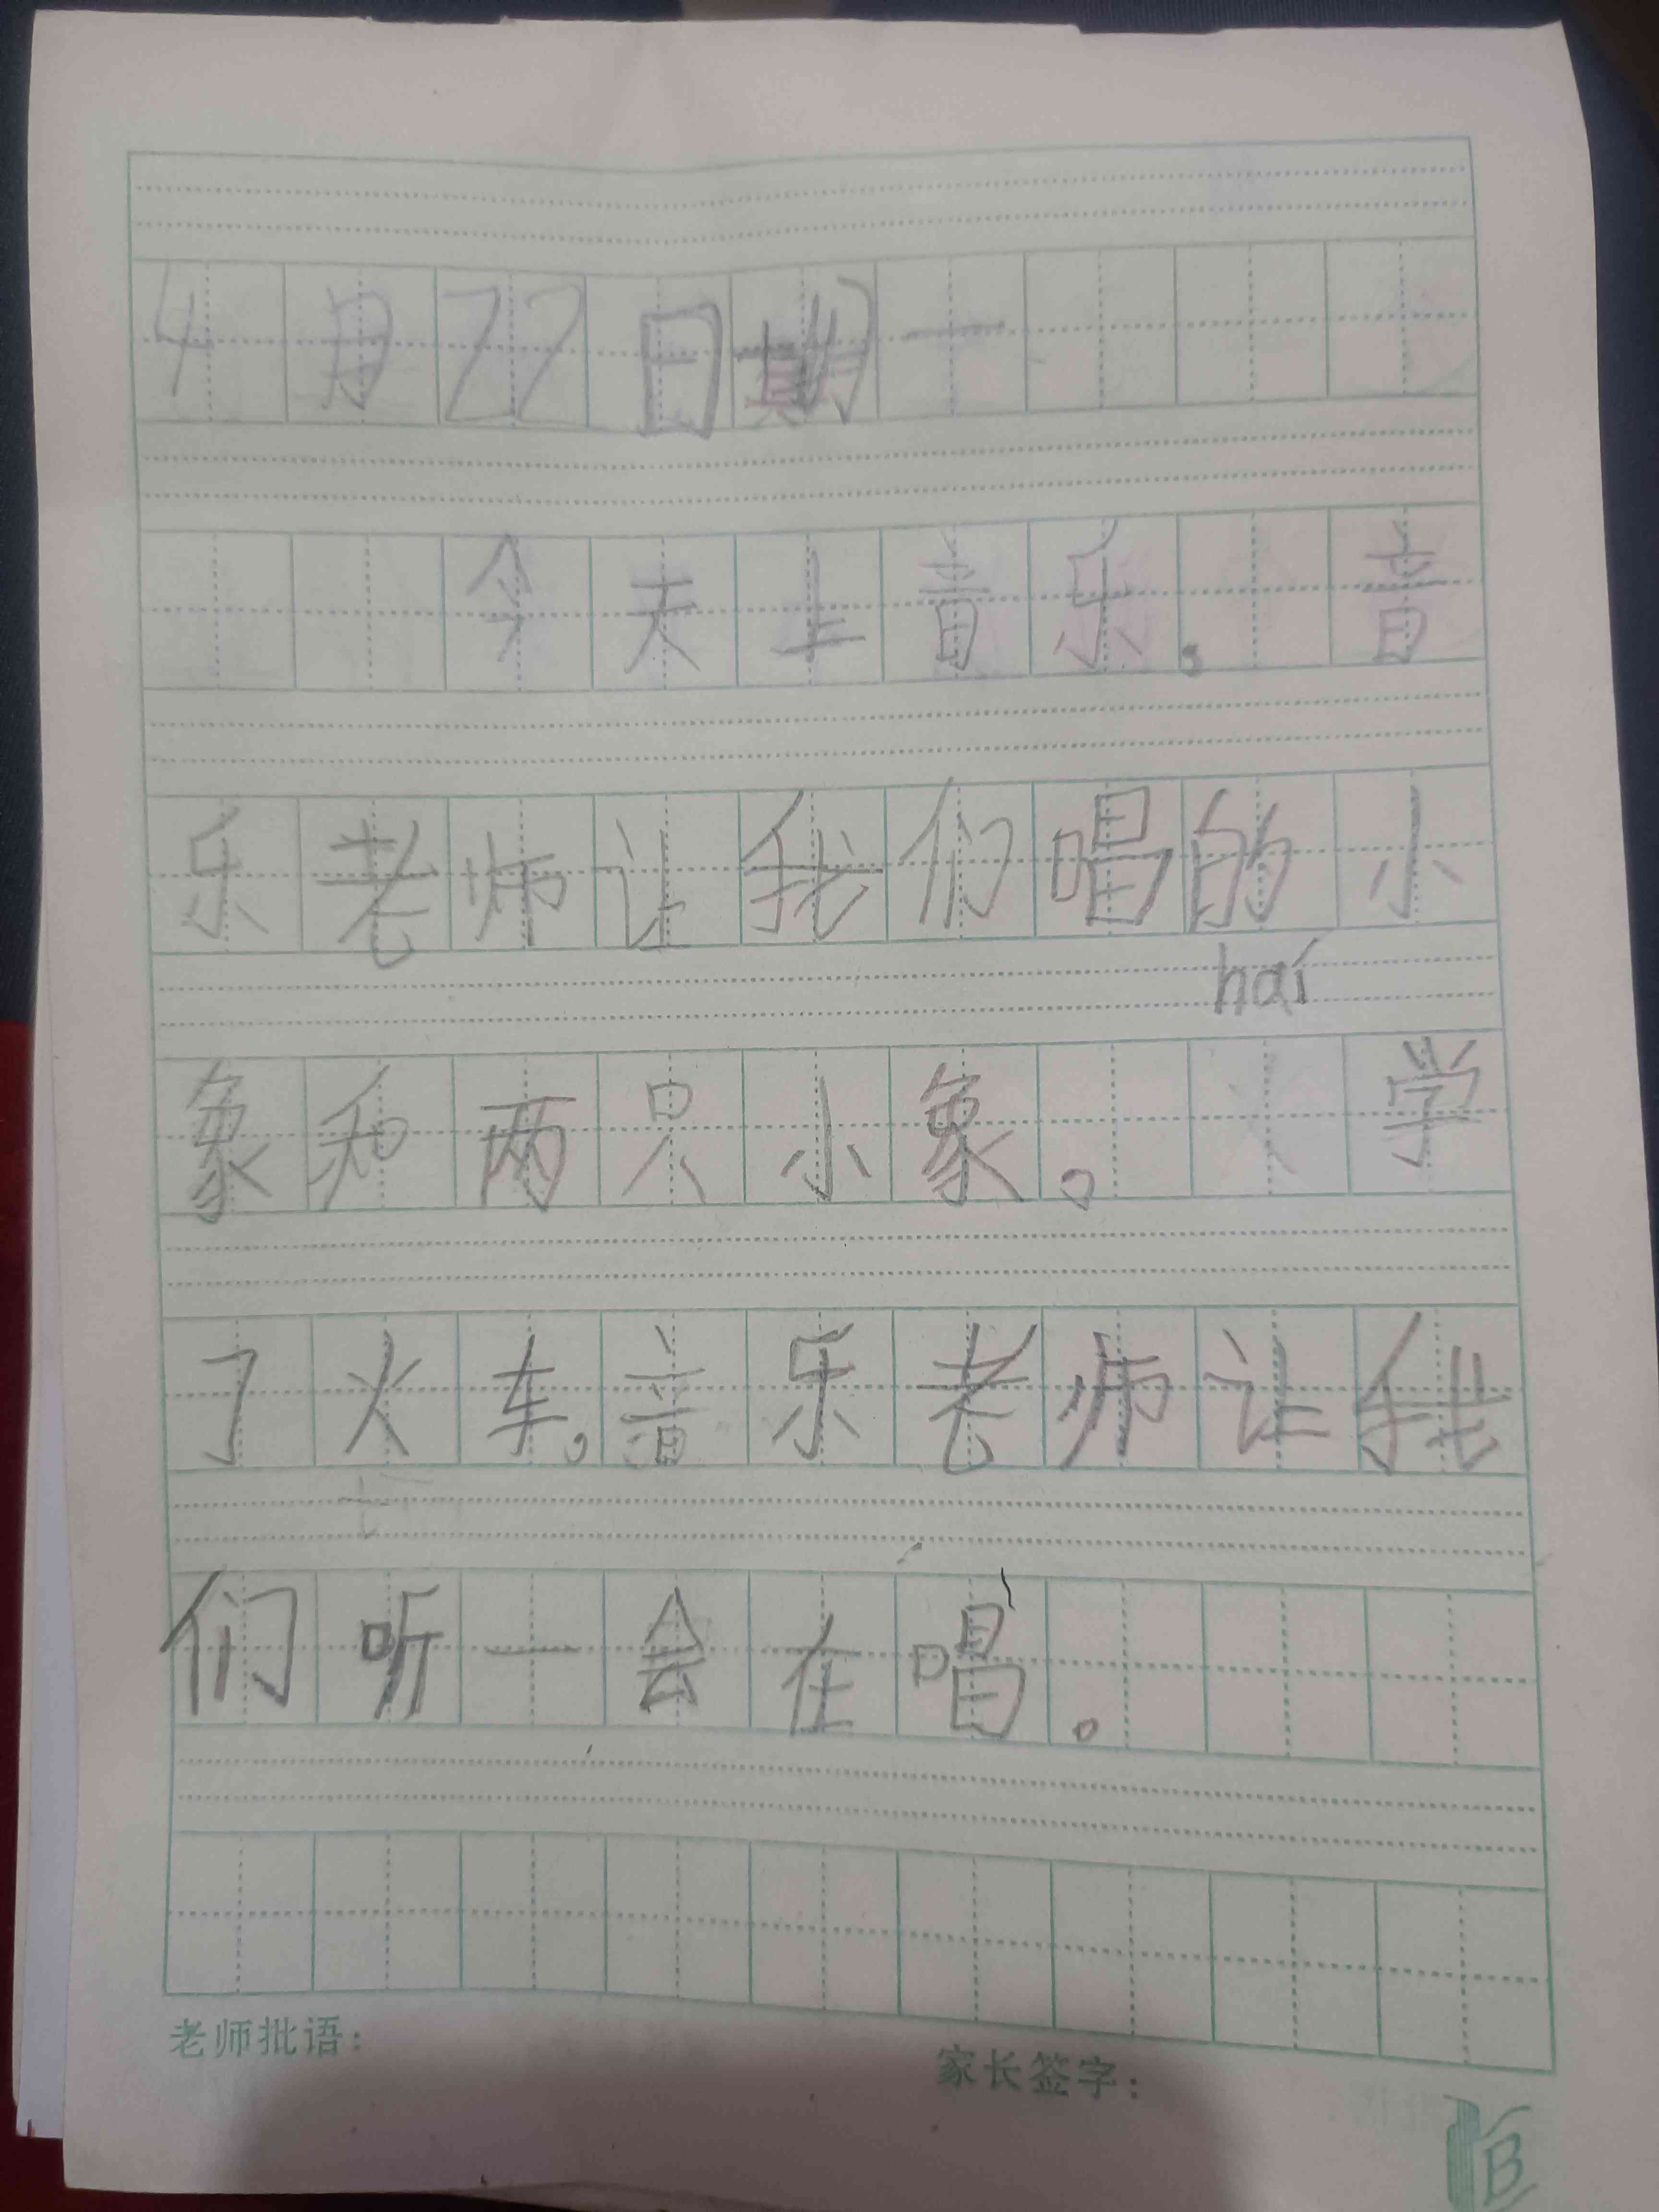 4月22日期一
今天上音乐。音
乐老师让我们唱的小
hái
象和两只小象。学
了火车。音乐老师让我
们听一会在唱。
老师批语：
家长签字：